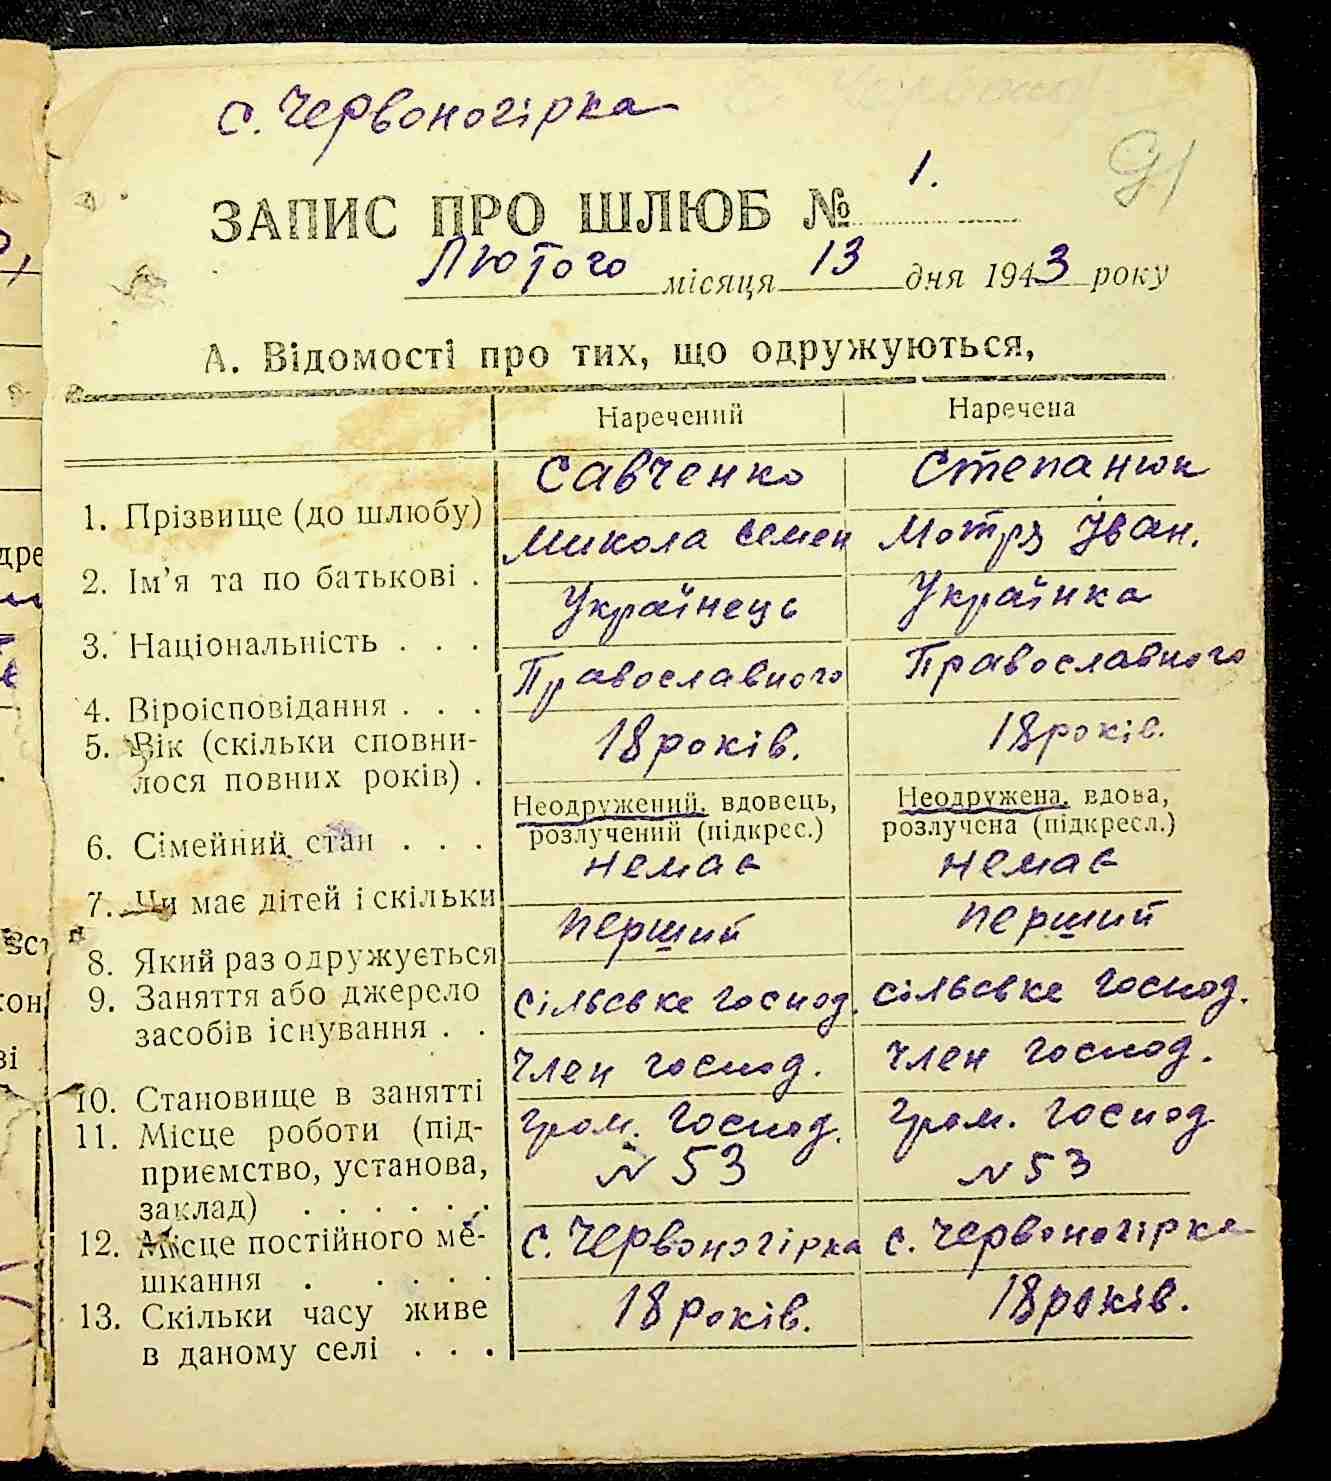 с. Червоногірка
91
ЗАПИС ПРО ШЛЮБ № 1.
Лютого місяця 13 дня 1943 року
А. Відомості про тих, що одружуються,
Наречений Наречена
1. Прізвище (до шлюбу) Савченко Степанюк
2. Ім'я та по батькові . Микола Семен Мотря Іван.
3. Національність . . . Українець Українка
4. Віроісповідання . . . Православного Православного
5. Вік (скільки сповни-
лося повних років) . 18 років. 18 років.
Неодружений, вдовець, Неодружена, вдова,
6. Сімейний стан . . . розлучений (підкрес.) розлучена (підкресл.)
7. Чи має дітей і скільки немає немає
8. Який раз одружується перший перший
9. Заняття або джерело
засобів існування . . сільське господ. сільське господ.
10. Становище в занятті член господ. член господ.
11. Місце роботи (під- гром. господ. гром. господ.
приємство, установа, N 53 N 53
заклад) . . . . . .
12. Місце постійного ме- с. Червоногірка с. Червоногірка
шкання . . . . .
13. Скільки часу живе 18 років. 18 років.
в даному селі . . .